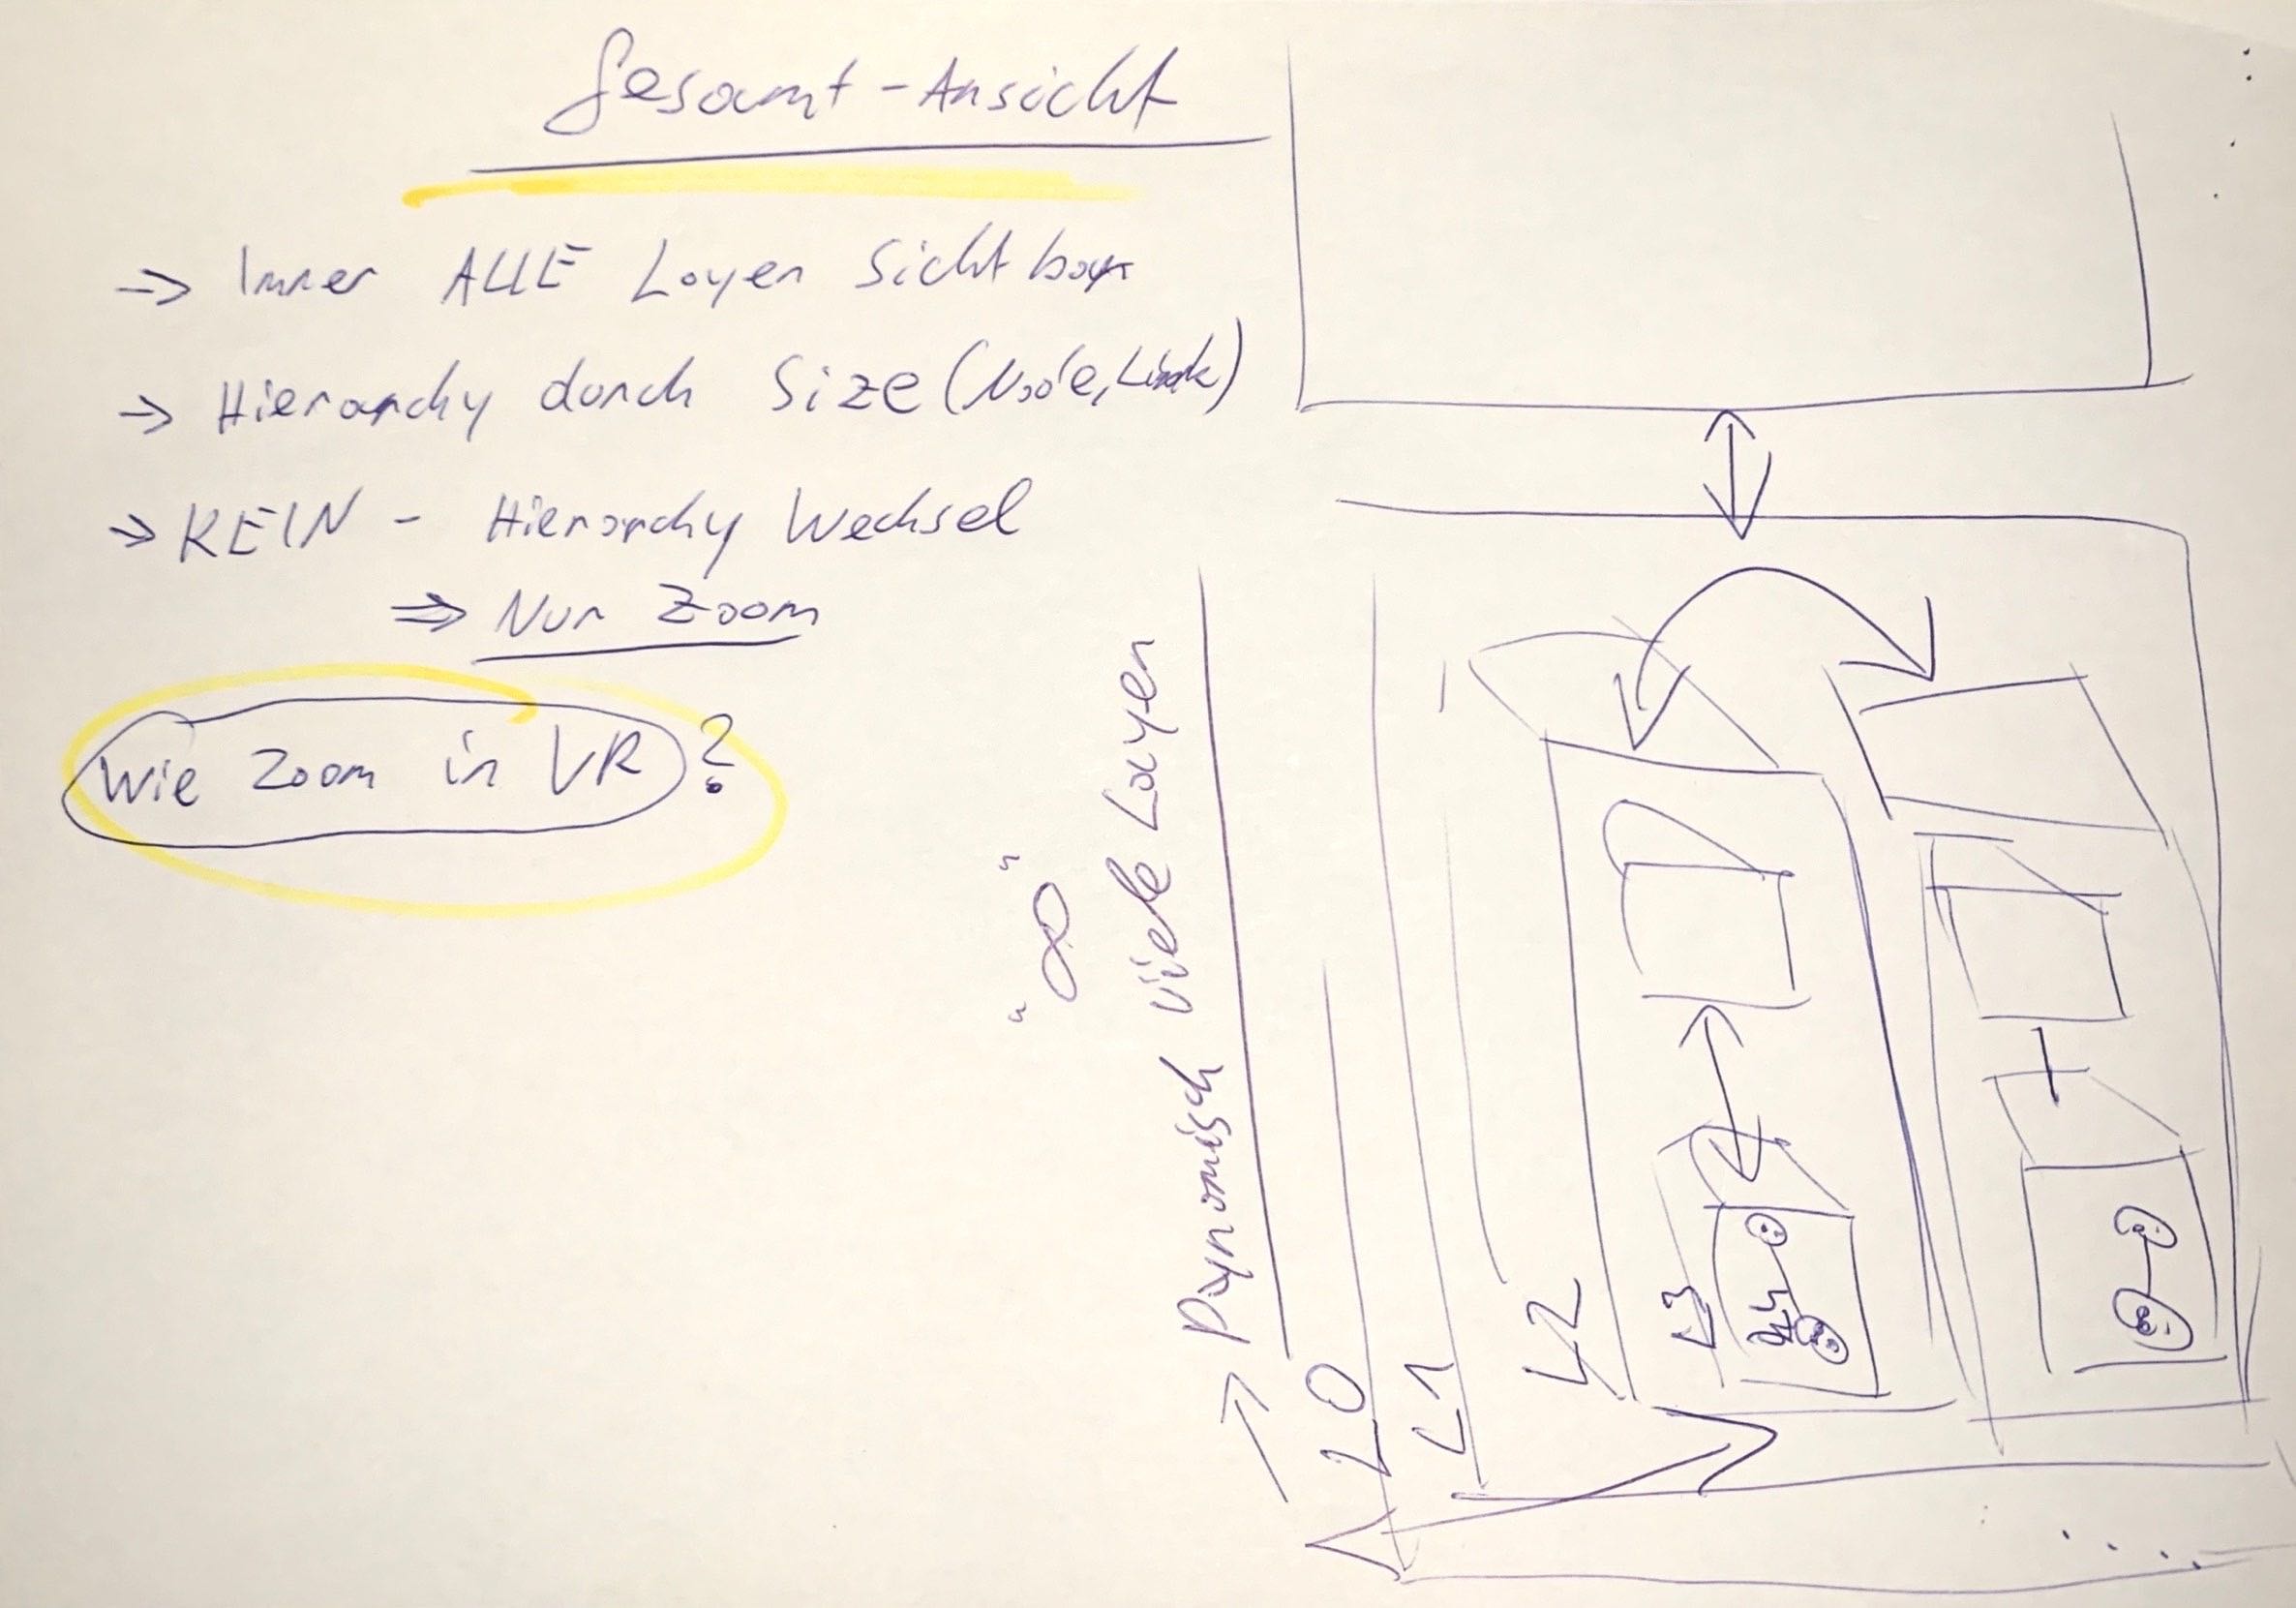 Gesamt-Ansicht
=> Immer ALLE Layer Sichtbar
=> Hierarchy durch Size (Node, Link)
=> KEIN - Hierarchy Wechsel
=> Nur Zoom
Wie Zoom in VR?
"∞"
→ Dynamisch viele Layer
L0
L1
L2
L3